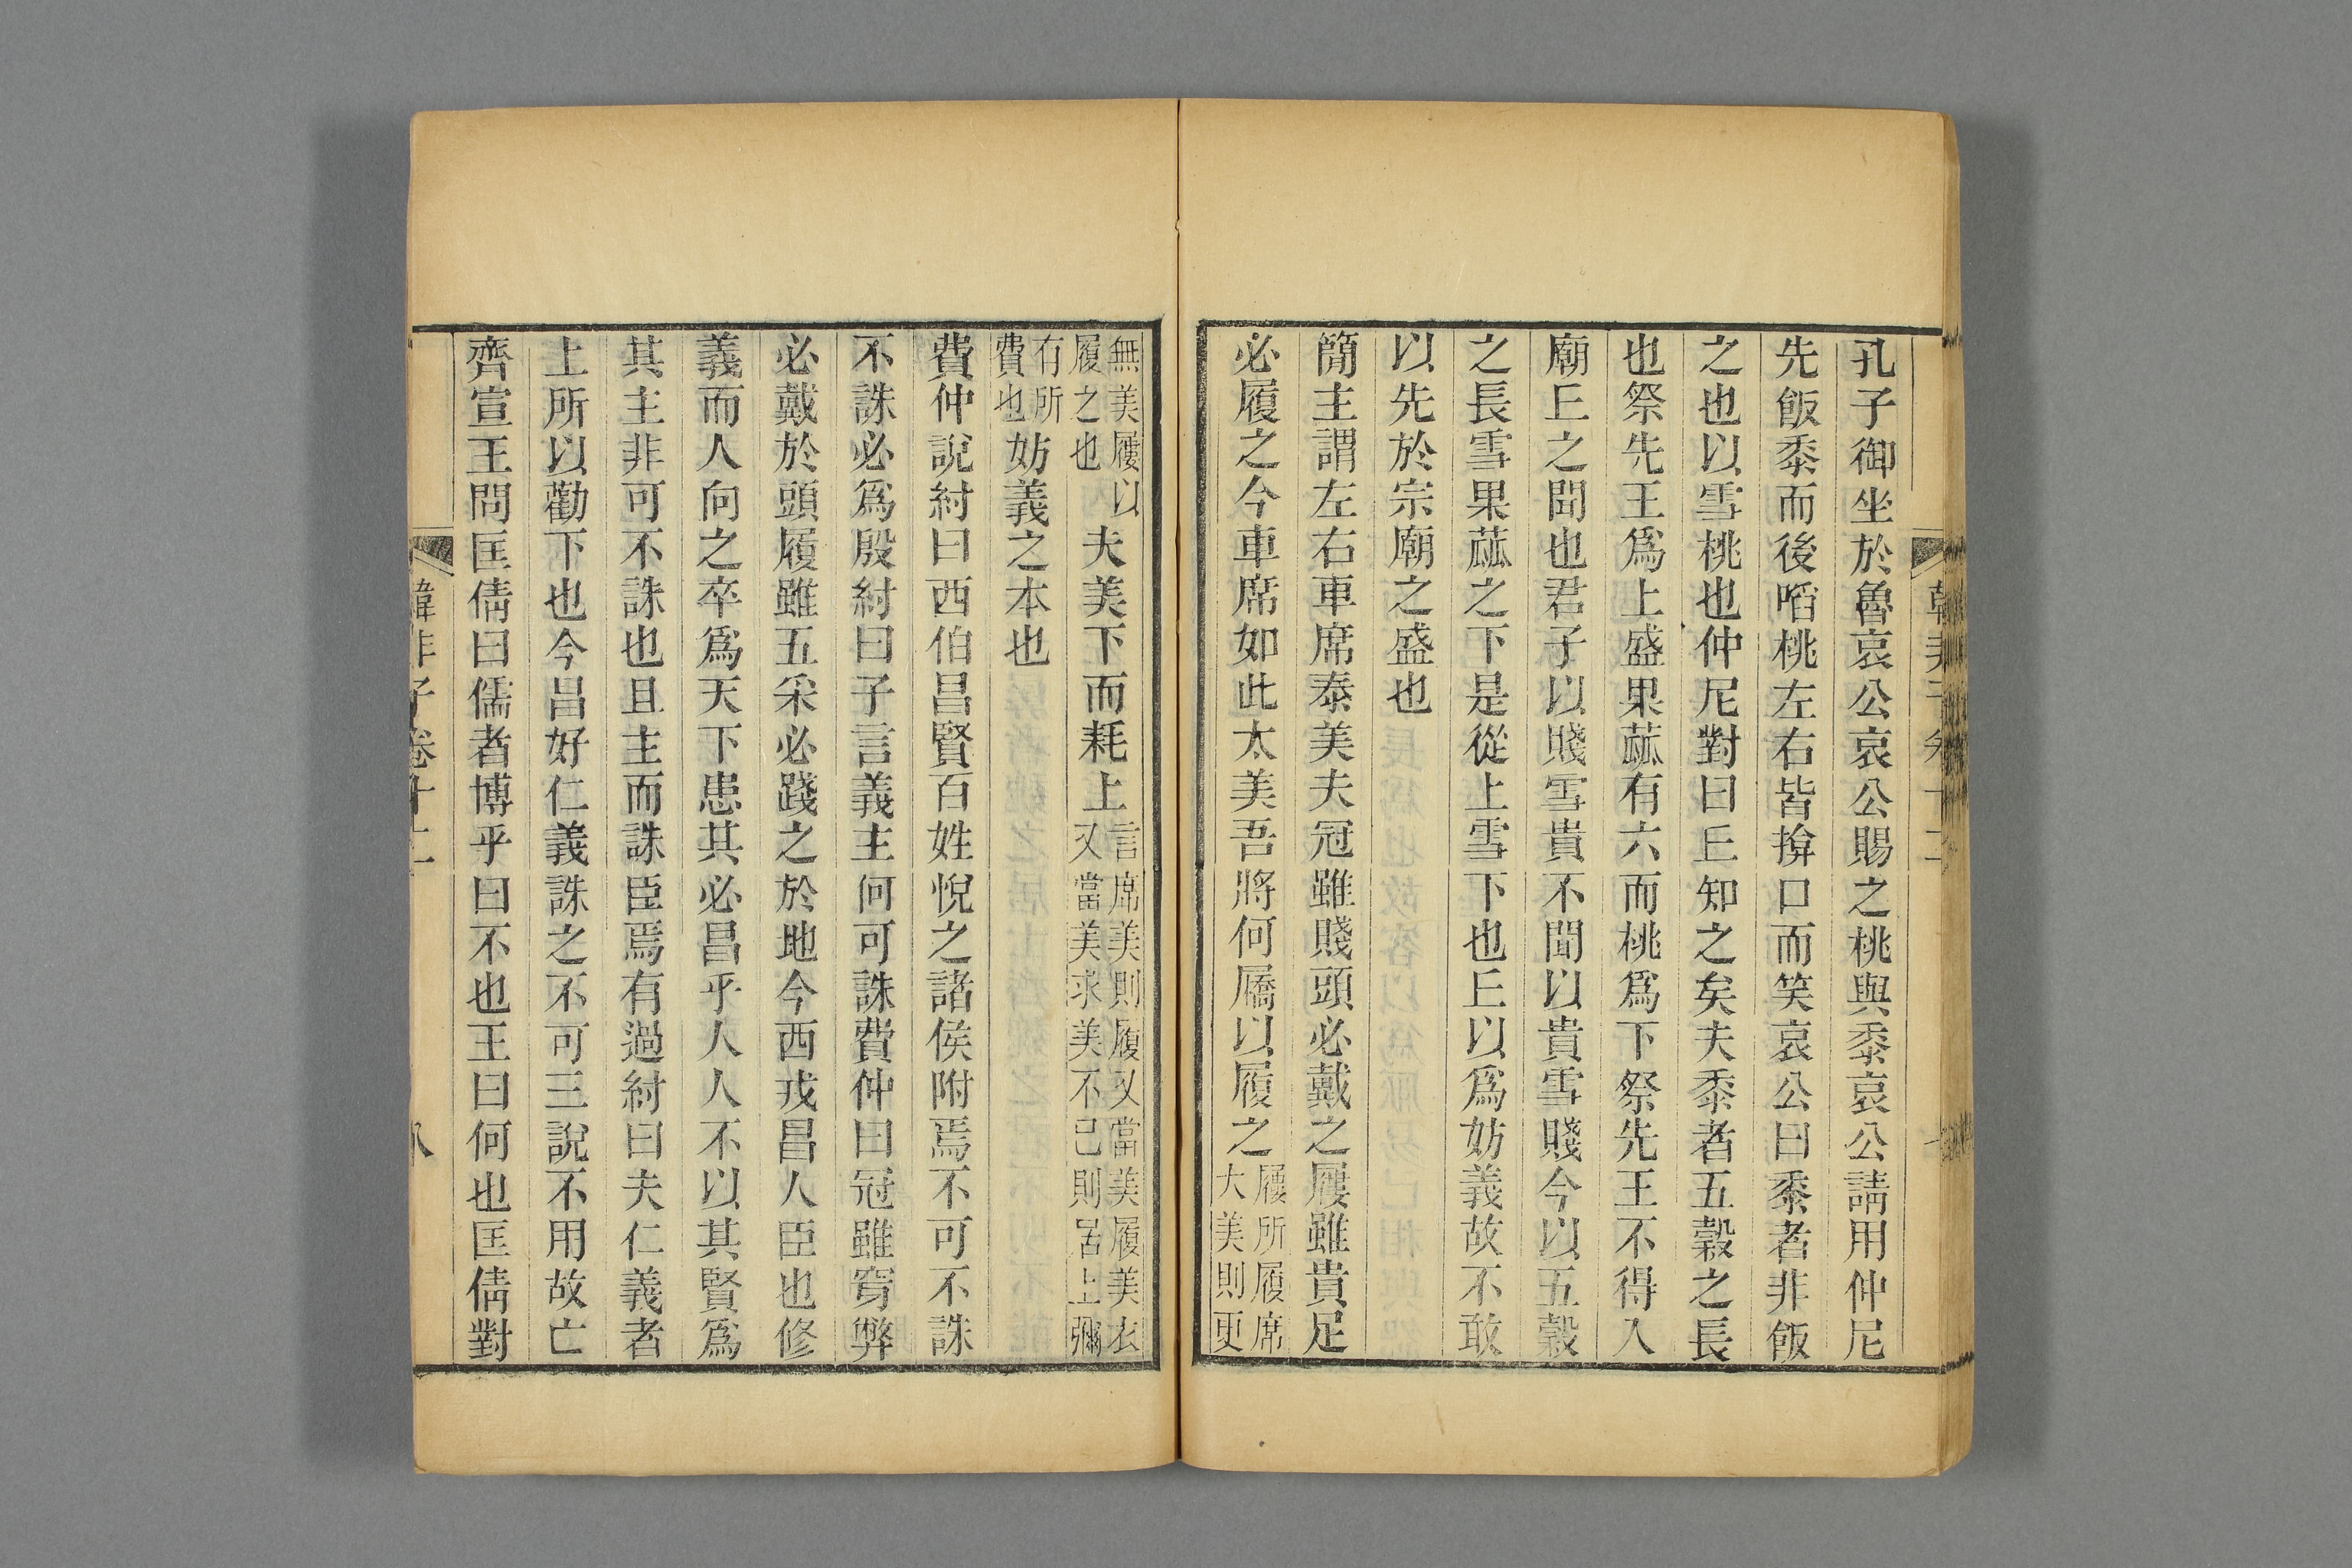 孔子御坐於魯哀公哀公賜之桃與黍哀公請用仲尼
先飯黍而後啗桃左右皆揜口而笑哀公曰黍者非飯
之也以雪桃也仲尼對曰丘知之矣夫黍者五穀之長
也祭先王爲上盛果蓏有六而桃爲下祭先王不得入
廟丘之聞也君子以賤雪貴不聞以貴雪賤今以五穀
之長雪果蓏之下是從上雪下也丘以爲妨義故不敢
以先於宗廟之盛也
簡主謂左右車席泰美夫冠雖賤頭必戴之屨雖貴足
必履之今車席如此太美吾將何屩以履之屨所履席
大美則更
無美屨以
履之也夫美下而耗上言席美則履又當美履美衣
又當美求美不已則居上彌
有所
費也妨義之本也
費仲說紂曰西伯昌賢百姓悅之諸侯附焉不可不誅
不誅必爲殷紂曰子言義主何可誅費仲曰冠雖穿弊
必戴於頭履雖五采必踐之於地今西戎昌人臣也修
義而人向之卒爲天下患其必昌乎人人不以其賢爲
其主非可不誅也且主而誅臣焉有過紂曰夫仁義者
上所以勸下也今昌好仁義誅之不可三說不用故亡
齊宣王問匡倩曰儒者博乎曰不也王曰何也匡倩對
韓非子卷十二
八